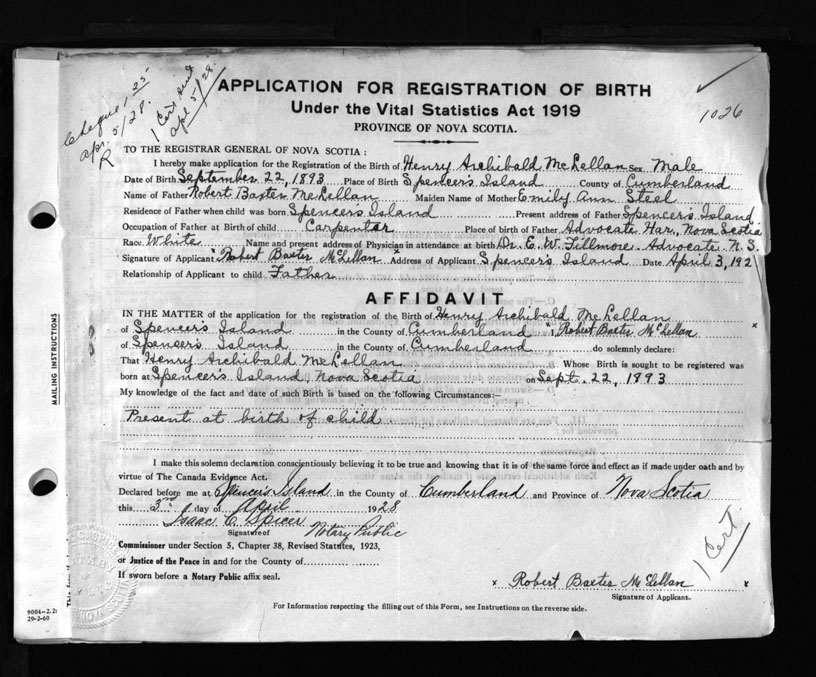 Cheque 1.25
apr. 5/28.
R
1 Cert sent
apl 5/28.
1026
APPLICATION FOR REGISTRATION OF BIRTH
Under the Vital Statistics Act 1919
PROVINCE OF NOVA SCOTIA.
TO THE REGISTRAR GENERAL OF NOVA SCOTIA :
I hereby make application for the Registration of the Birth of Henry Archibald McLellan Sex Male
Date of Birth September 22, 1893 Place of Birth Spencer's Island County of Cumberland
Name of Father Robert Baxter McLellan Maiden Name of Mother Emily Ann Steel
Residence of Father when child was born Spencer's Island Present address of Father Spencer's Island
Occupation of Father at Birth of child Carpenter Place of birth of Father Advocate Har., Nova Scotia
Race White Name and present address of Physician in attendance at birth Dr. E. W. Fillmore. Advocate N. S.
Signature of Applicant x Robert Baxter McLellan Address of Applicant Spencer's Island Date April 3, 192
Relationship of Applicant to child Father
AFFIDAVIT
IN THE MATTER of the application for the registration of the Birth of Henry Archibald McLellan
of Spencer's Island in the County of Cumberland Robert Baxter McLellan x
of Spenser's Island in the County of Cumberland do solemnly declare:
That Henry Archibald McLellan Whose Birth is sought to be registered was
born at Spencer's Island, Nova Scotia on Sept. 22, 1893
My knowledge of the fact and date of such Birth is based on the following Circumstances:—
Present at birth of child
I make this solemn declaration conscientiously believing it to be true and knowing that it is of the same force and effect as if made under oath and by
virtue of The Canada Evidence Act.
Declared before me at Spencer's Island in the County of Cumberland and Province of Nova Scotia
this 3rd day of April 1928
Isaac C. Spicer Notary Public
Signature of
Commissioner under Section 5, Chapter 38, Revised Statutes, 1923,
or Justice of the Peace in and for the County of
If sworn before a Notary Public affix seal.
1 Cert.
x Robert Baxter McLellan x
Signature of Applicant.
For Information respecting the filling out of this Form, see Instructions on the reverse side.
MAILING INSTRUCTIONS
9004-2.2
29-2-60
NOVA SCOTIA